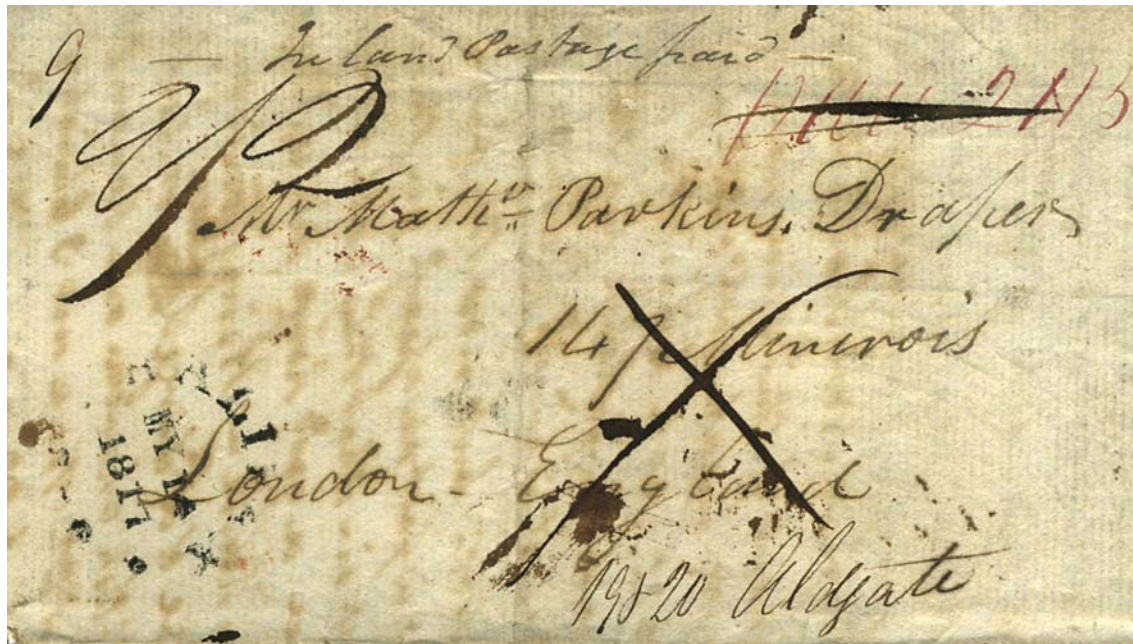 9 — Inland Postage paid —
2/2
Mr Matthw Parkins, Draper
147 Minorois
London - England
19 & 20 Aldgate
MY
1817